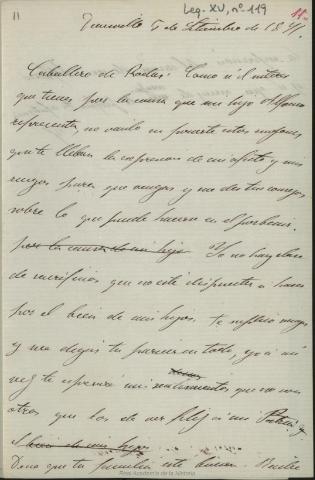 11
Leg. XV, nº 119
Trouville 5 de Setiembre de 1871.
Caballero de Rodas: Como sé el interes
que tienes por la causa que mi hijo Alfonso
representa, no vacilo en ponerte estos renglones
que te llevan la expresion de mi afecto y mis
ruegos para que vengas y me des tus consejos
sobre lo que puede hacerse en el porbenir.
por la causa de mi hijo Yo no hay clase
de sacrificios que no esté dispuesta a hacer
por el bien de mis hijos. Te suplico vengas
y me digas tu parecer en todo, yo a mi
vez te esperaré mis sentimientos que no son
otros que los de ser feliz á mi Patria y
el bien de mis hijos
Deseo que tu familia esté buena. Recibe
Real Academia de la Historia